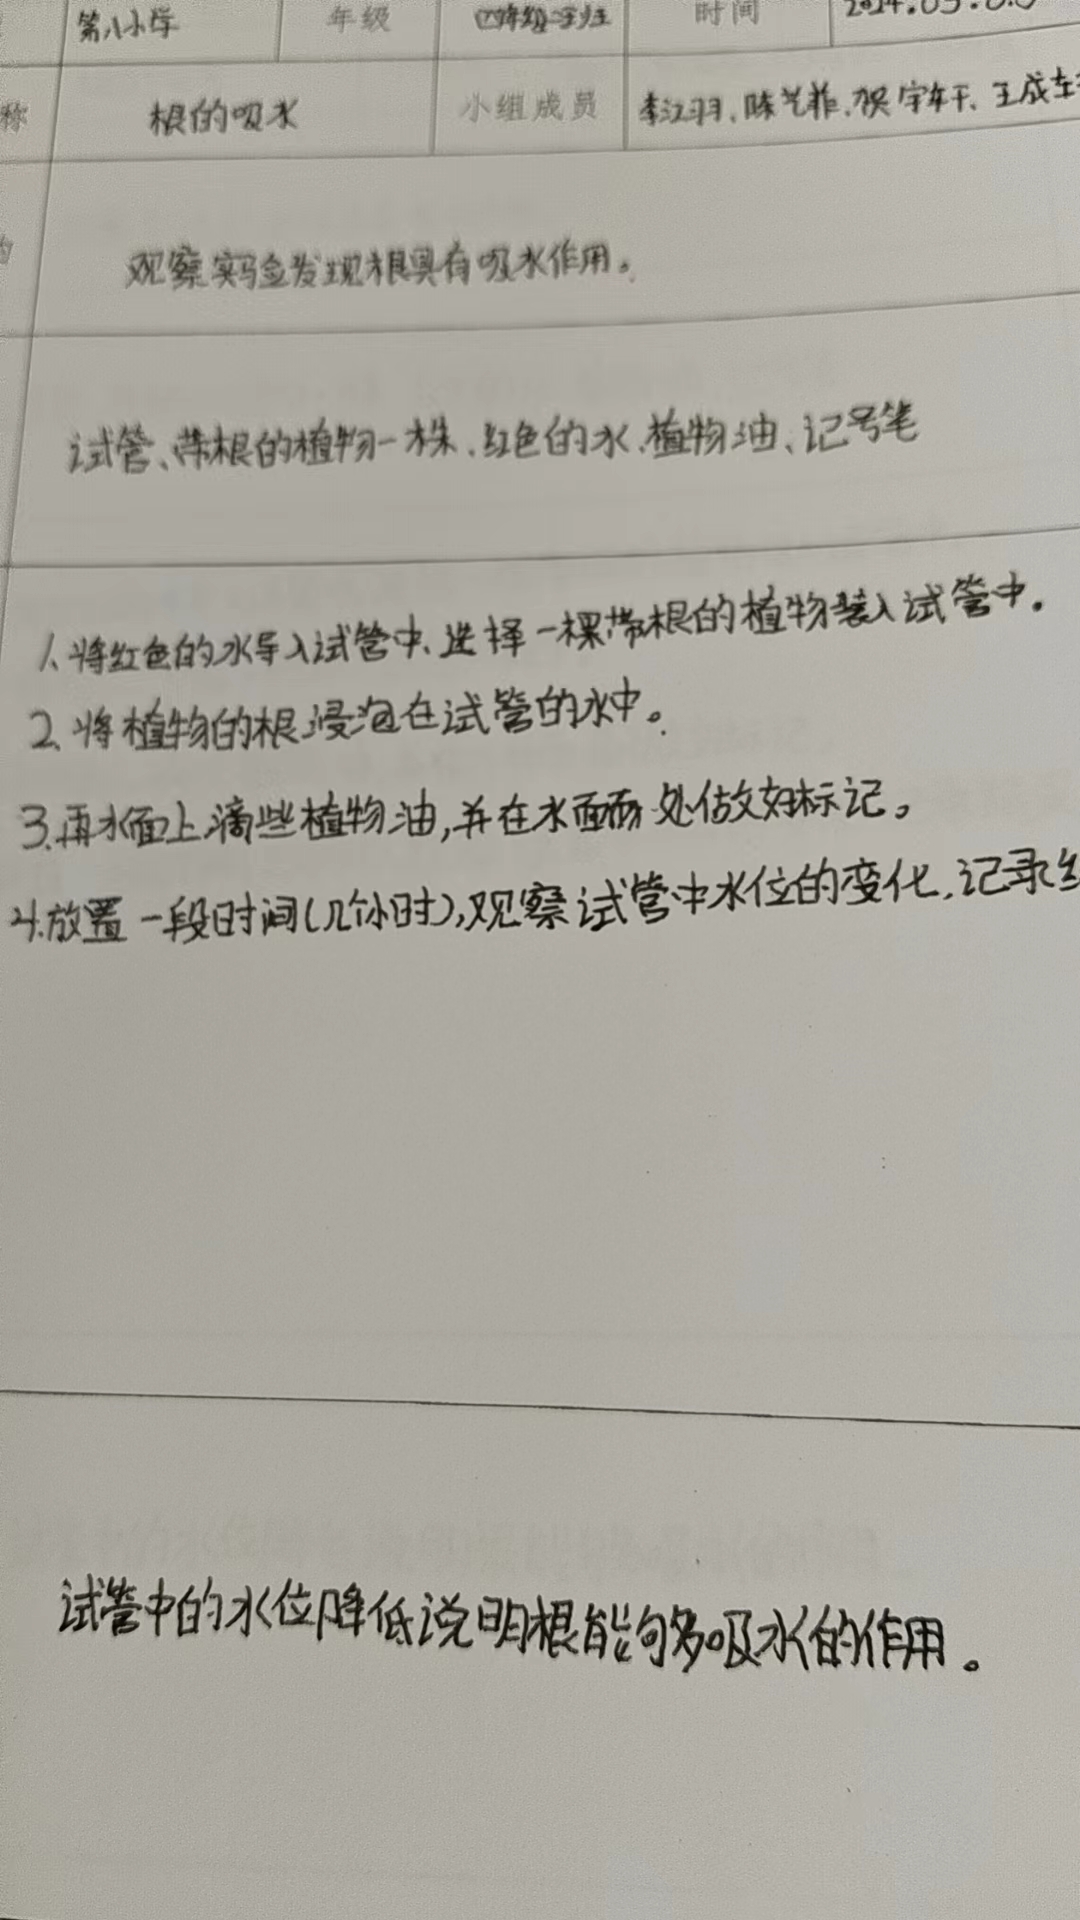 第八小学 年级 四年级二班 时间
称 根的吸水 小组成员
观察实验发现根具有吸水作用。
试管、带根的植物一株、红色的水、植物油、记号笔
1、将红色的水导入试管中、选择一棵带根的植物装入试管中。
2、将植物的根浸泡在试管的水中。
3、再水面上滴些植物油,并在水面面处做好标记。
4.放置一段时间(几个小时),观察试管中水位的变化,记录
试管中的水位降低说明根能够多吸水的作用。